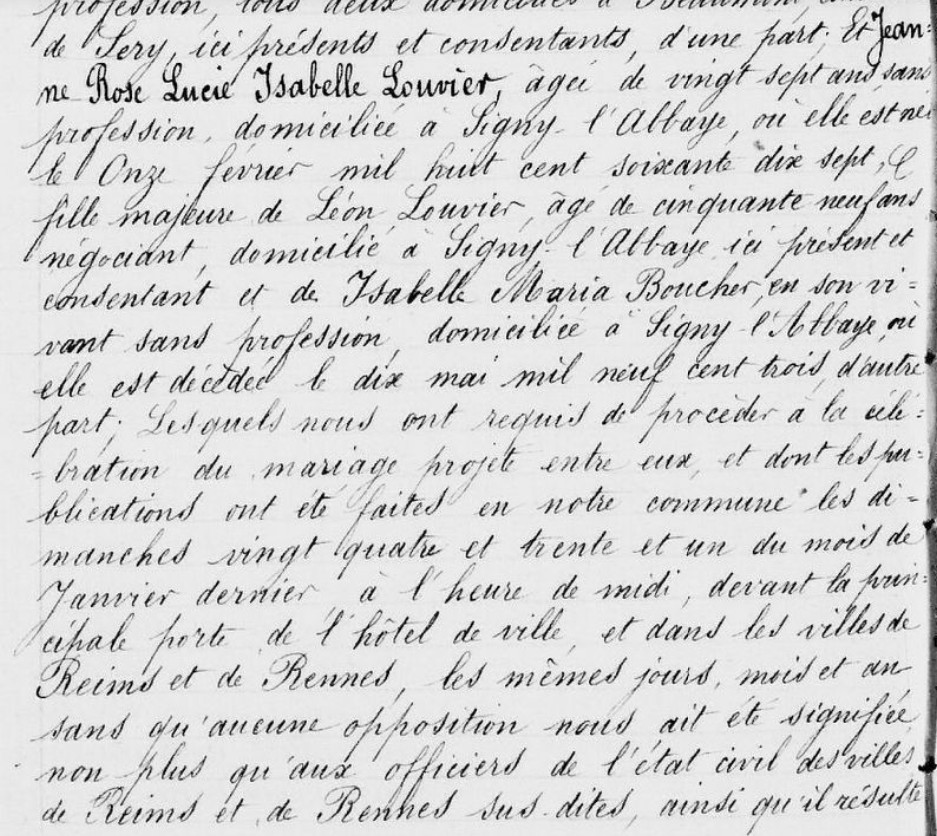 profession, tous deux domiciliés à Beaumont
de Sery, ici présents et consentants, d'une part; Et Jean=
ne Rose Lucie Isabelle Louvier, âgée de vingt sept ans sans
profession, domiciliée à Signy-l'Abbaye, où elle est née
le Onze février mil huit cent soixante dix sept,
fille majeure de Léon Louvier, âgé de cinquante neuf ans
négociant, domicilié à Signy-l'Abbaye ici présent et
consentant et de Isabelle Maria Boucher, en son vi=
vant sans profession, domiciliée à Signy-l'Abbaye, où
elle est décédée le dix mai mil neuf cent trois, d'autre
part; Lesquels nous ont requis de procéder à la célé=
=bration du mariage projeté entre eux, et dont les pu=
blications ont été faites en notre commune les di=
manches vingt quatre et trente et un du mois de
Janvier dernier, à l'heure de midi, devant la prin=
cipale porte de l'hôtel de ville, et dans les villes de
Reims et de Rennes, les mêmes jours, mois et an
sans qu'aucune opposition nous ait été signifiée,
non plus qu'aux officiers de l'état civil des villes
de Reims et de Rennes sus-dites, ainsi qu'il résulte